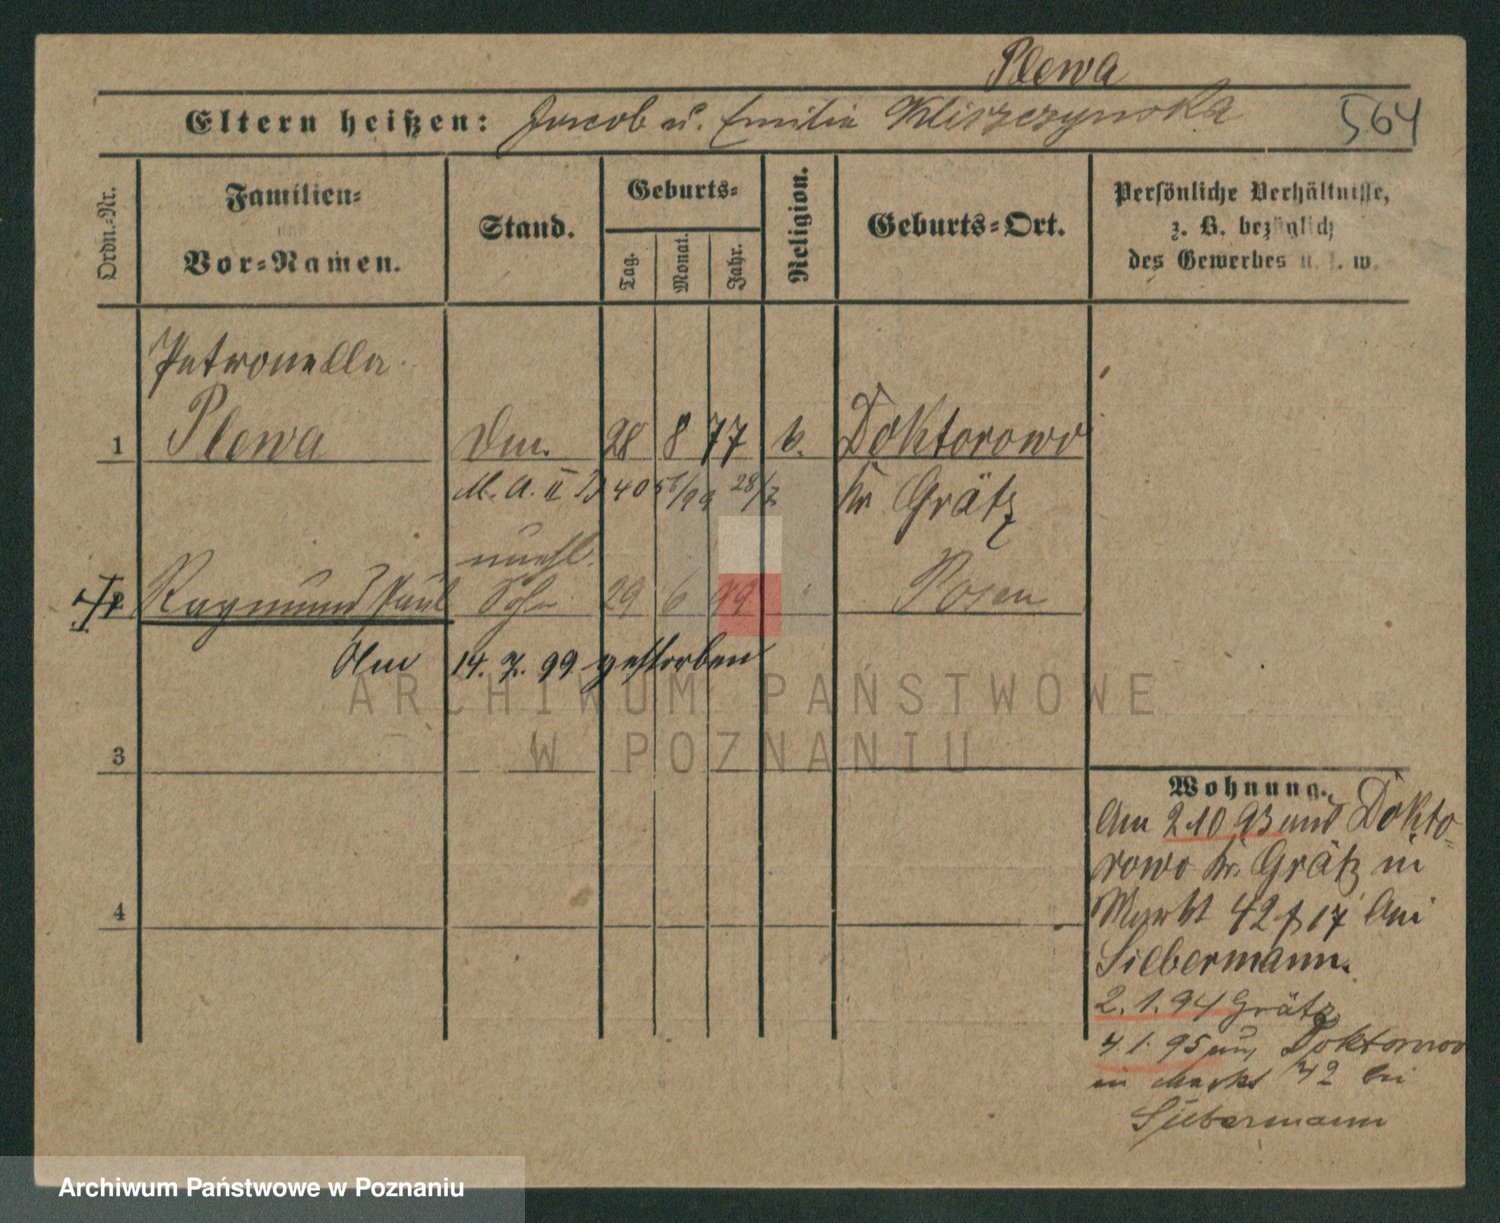 Plewa
Eltern heißen: Jacob u. Emilia Kliszczynska 564
Ordn.-Nr.
Familien-
und
Vor-Namen.
Stand.
Geburts-
Tag. Monat. Jahr.
Religion.
Geburts-Ort.
Persönliche Verhältnisse,
z. B. bezüglich
des Gewerbes u. s. w.
Petronella
1 Plewa 28 8 77 k. Doktorowo
M. A. II 28/7 Kr Grätz
unehl.
2 Raymund Paul Sohn 29 6 99 Posen
Am 14. 7. 99 gestorben
3
4
Wohnung.
Am 2 10 93 aus Dokto-
rowo Kr. Grätz in
Markt 42 bei
Siebermann.
2. 1. 94 Grätz
4. 1. 95 aus Doktorowo
in Markt 42 bei
Siebermann
ARCHIWUM PAŃSTWOWE
W POZNANIU
Archiwum Państwowe w Poznaniu